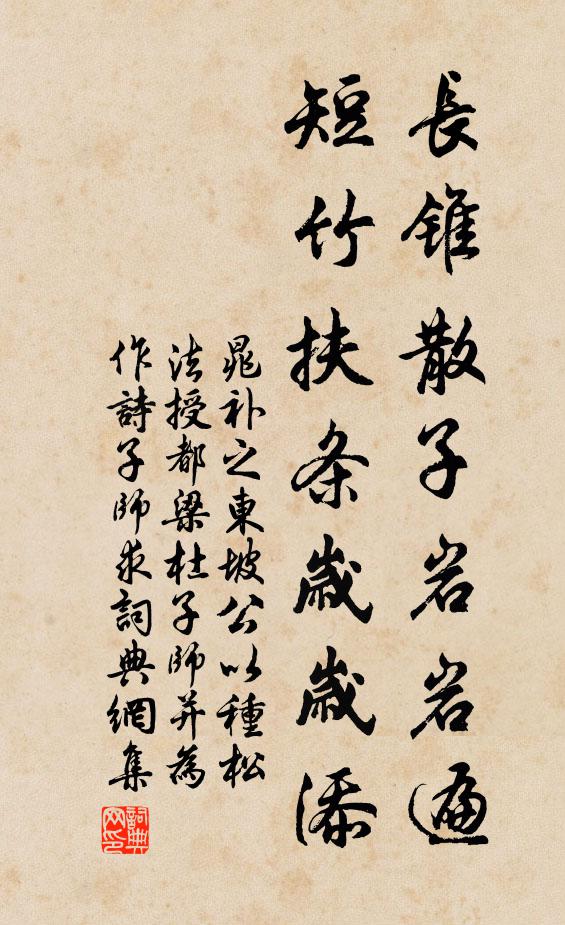 長錐散子岩岩遍
短竹扶条歳歳添
晁补之東坡公以種松
法授都梁杜子師并為
作詩子師求詞典網集
詞典网印